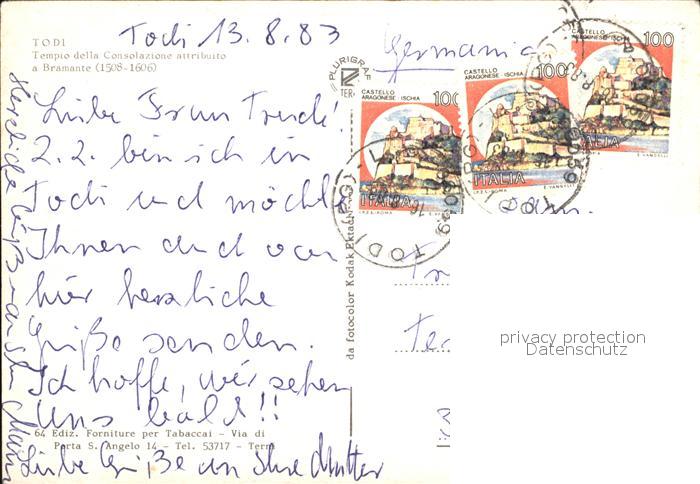 TODI
Tempio della Consolazione attribuito
a Bramante (1508-1606)
Todi 13.8.83
Liebe Frau Trude!
Z.Z. bin ich in
Todi und möchte
Ihnen auch von
hier herzliche
Grüße senden.
Ich hoffe, wir sehen
uns bald!!
Liebe Grüße an Ihre Mutter
Herzliche Grüße
64 Ediz. Forniture per Tabaccai - Via di
Porta S. Angelo 14 - Tel. 53717 - Terni
PLURIGRAF
TER
da fotocolor Kodak Ektach
Germania
CASTELLO
ARAGONESE ISCHIA
100
ITALIA
I.P.Z.S. ROMA
CASTELLO
ARAGONESE ISCHIA
100
ITALIA
I.P.Z.S. ROMA E. VANGELLI
CASTELLO
ARAGONESE ISCHIA
100
ITALIA
E. VANGELLI
TODI (PG)
privacy protection
Datenschutz